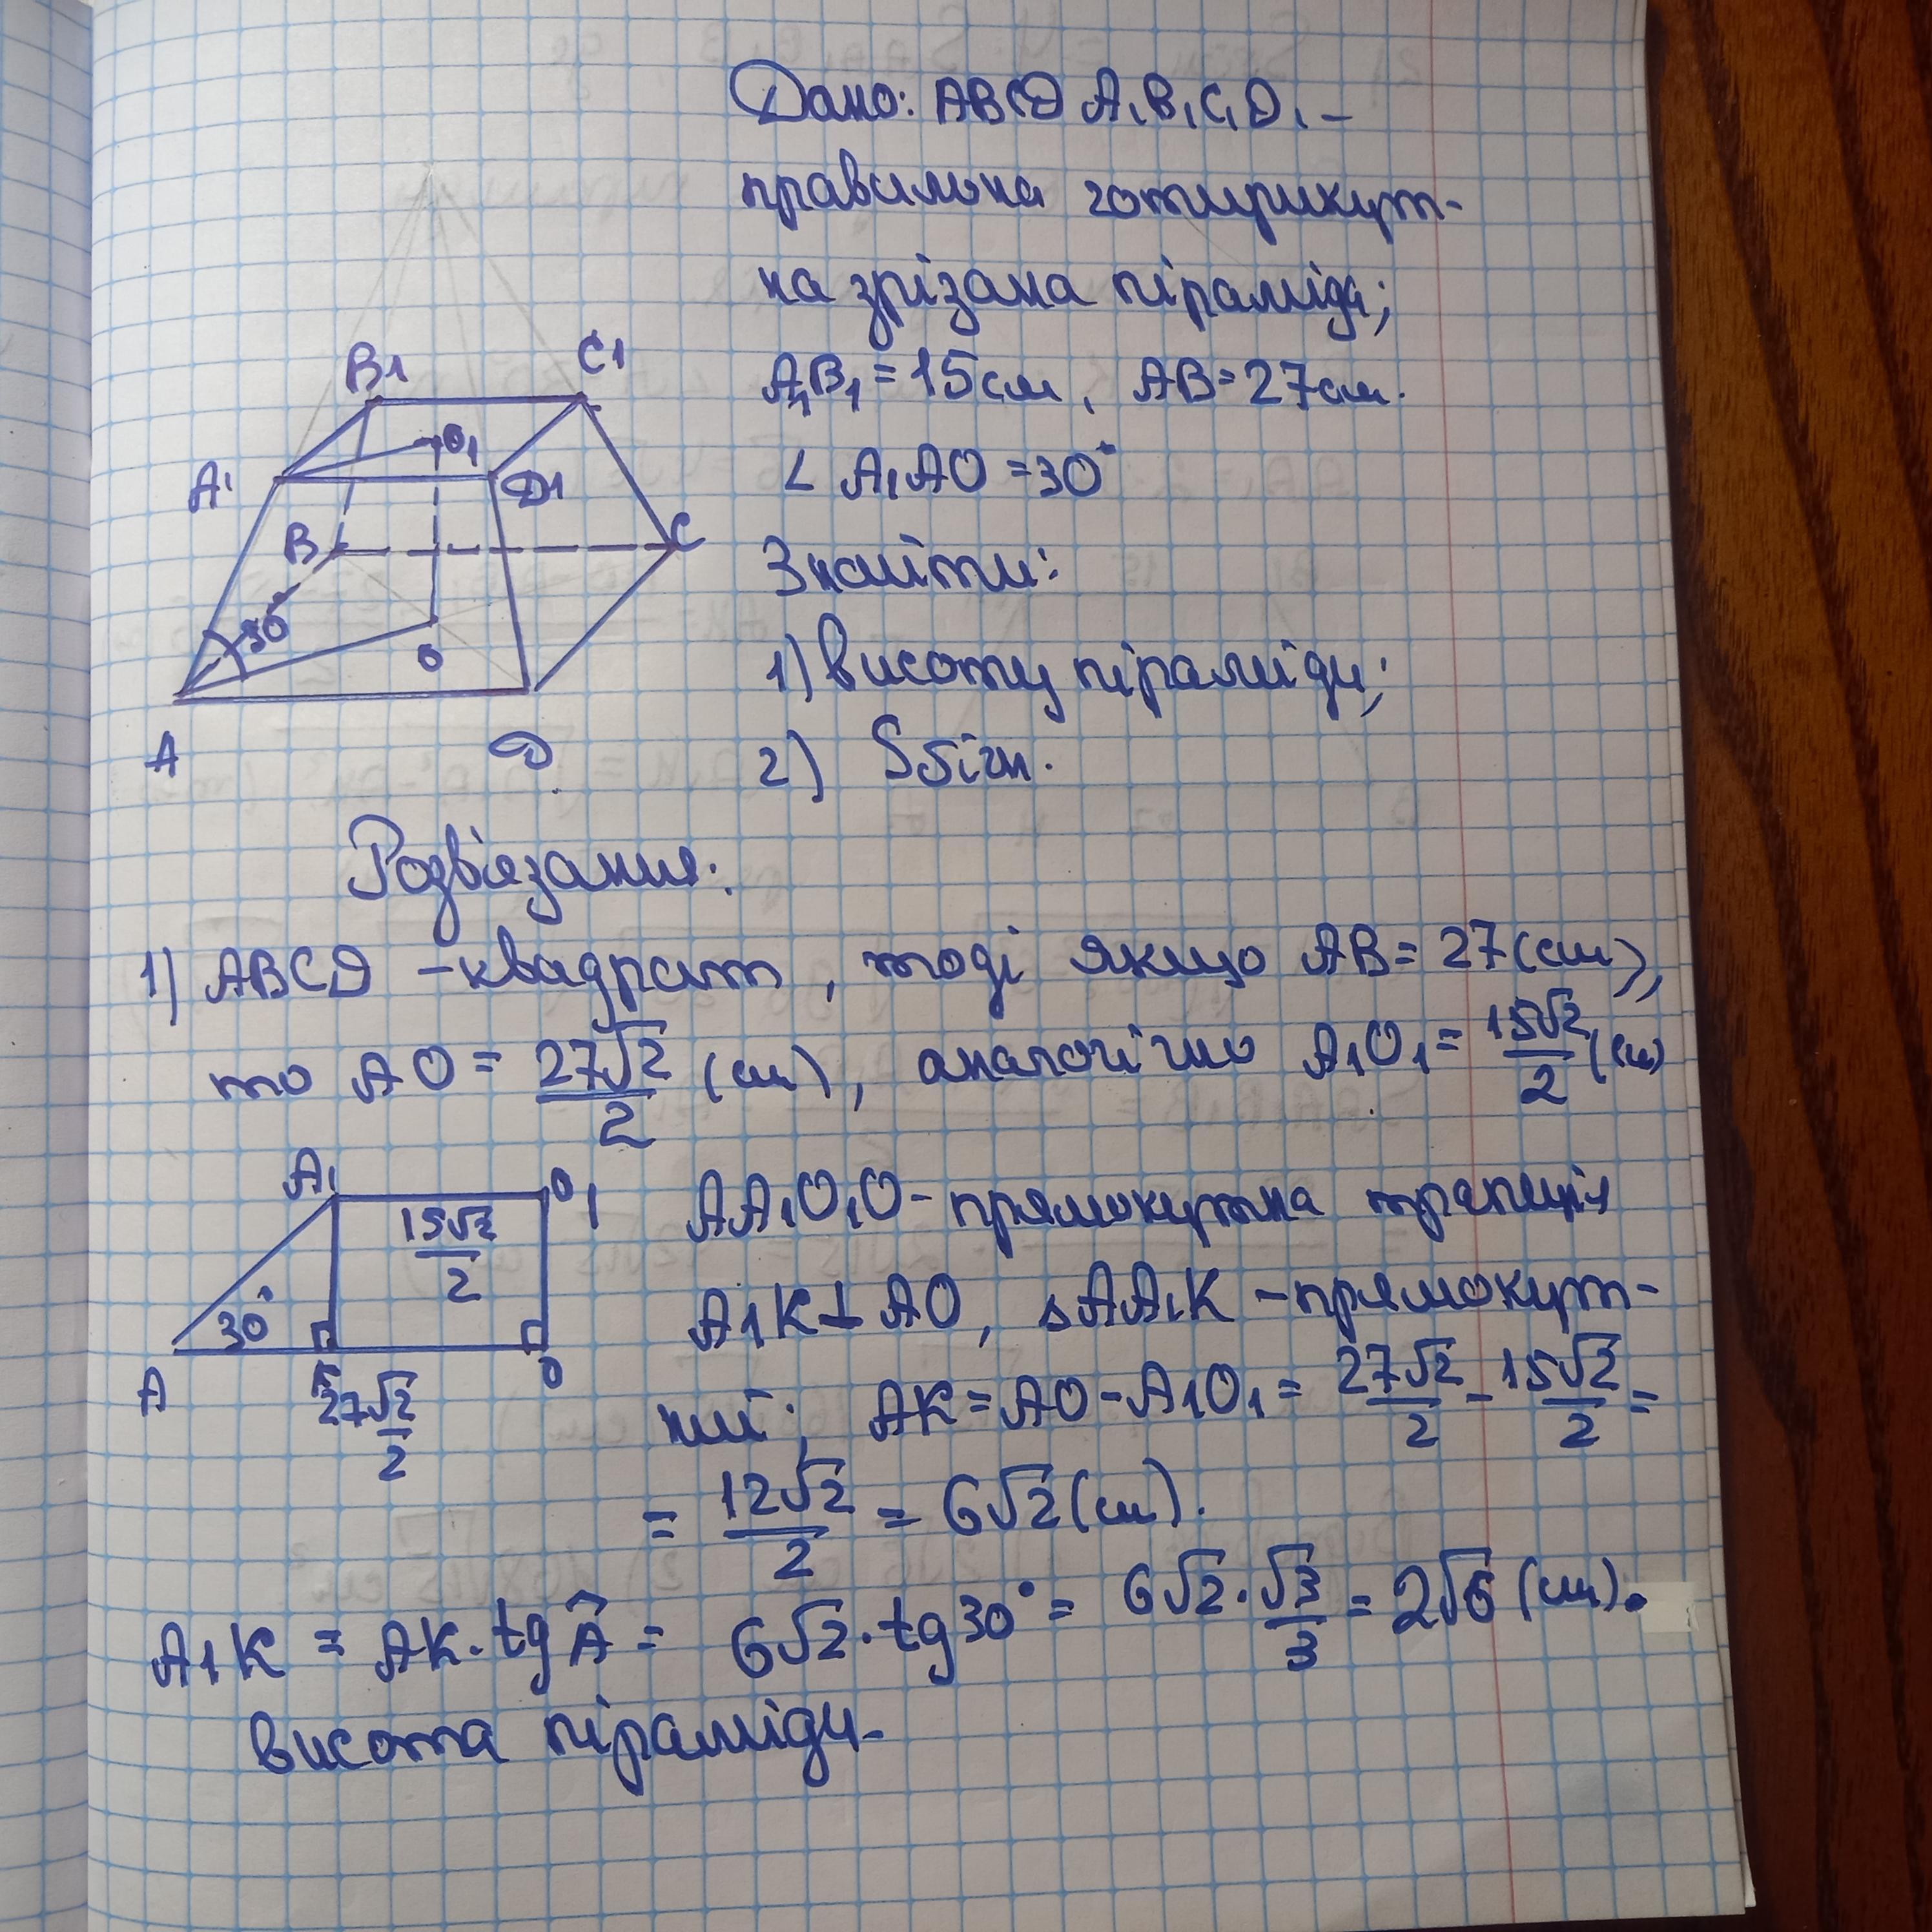 Дано: ABCD A₁B₁C₁D₁ –
правильна чотирикут-
на зрізана піраміда;
A₁B₁ = 15 см, AB = 27 см.
∠ A₁AO = 30°
Знайти:
1) висоту піраміди;
2) Sбічн.
B1
C1
A1
O1
D1
B
C
30
O
A
D
Розв'язання:
1) ABCD – квадрат, тоді якщо AB = 27 (см),
то AO = 27√2/2 (см), аналогічно A₁O₁ = 15√2/2 (см)
A₁
O₁
15√2/2
30°
A
K
O
27√2/2
AA₁O₁O – прямокутна трапеція
A₁K ⊥ AO, ΔAA₁K – прямокут-
ний; AK = AO – A₁O₁ = 27√2/2 – 15√2/2 =
= 12√2/2 = 6√2 (см).
A₁K = AK · tg Â = 6√2 · tg 30° = 6√2 · √3/3 = 2√6 (см).
висота піраміди.